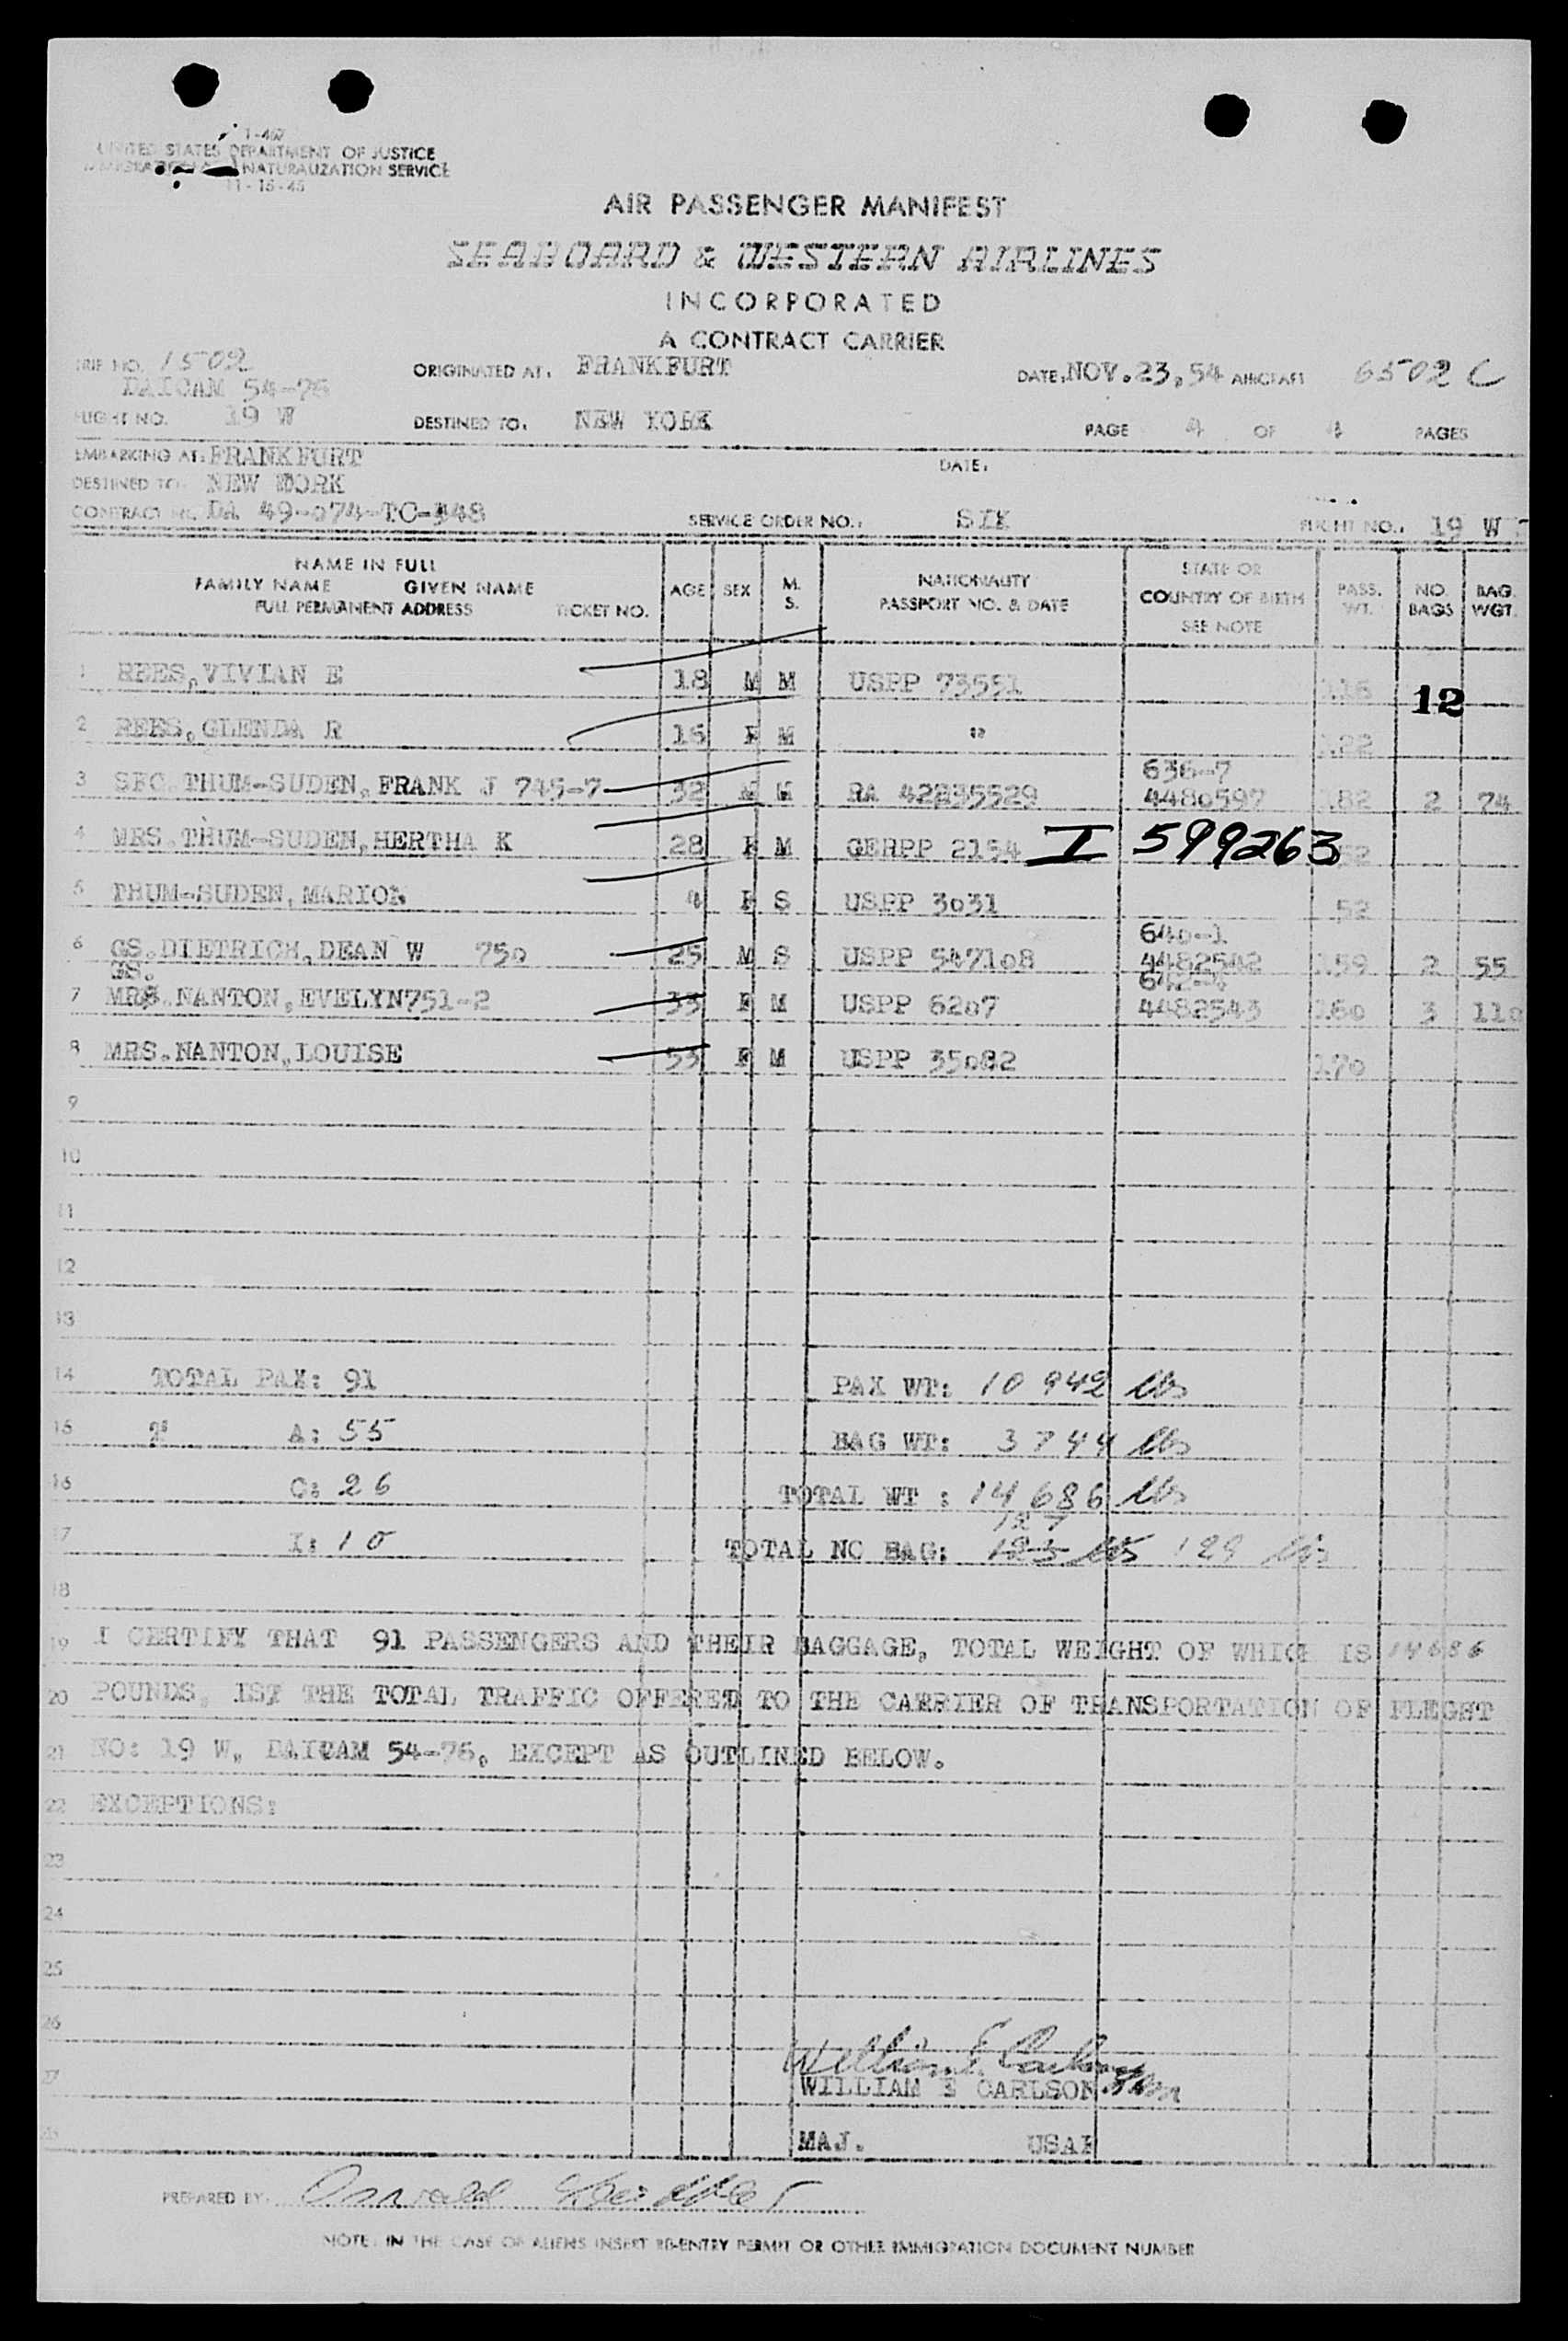 I-467
UNITED STATES DEPARTMENT OF JUSTICE
NATURALIZATION SERVICE
11-15-45
AIR PASSENGER MANIFEST
SEABOARD & WESTERN AIRLINES
INCORPORATED
A CONTRACT CARRIER
TRIP NO. 1502 ORIGINATED AT: FRANKFURT DATE: NOV. 23, 54 AIRCRAFT 6502 C
DAICAM 54-76
FLIGHT NO. 19 W DESTINED TO: NEW YORK PAGE 4 OF 4 PAGES
EMBARKING AT: FRANKFURT DATE:
DESTINED TO: NEW YORK
CONTRACT NO. DA 49-074-TC-348 SERVICE ORDER NO.: SIX FLIGHT NO.: 19 W
NAME IN FULL
FAMILY NAME GIVEN NAME
FULL PERMANENT ADDRESS TICKET NO. AGE SEX M. S. NATIONALITY PASSPORT NO. & DATE STATE OR COUNTRY OF BIRTH SEE NOTE PASS. WT. NO. BAGS BAG. WGT.
1 REES, VIVIAN E 18 M M USPP 73551 116 12
2 REES, GLENDA R 16 F M " 122
636-7
3 SFC. THUM-SUDEN, FRANK J 745-7 32 M M RA 42235529 4480597 182 2 74
4 MRS. THUM-SUDEN, HERTHA K 28 F M GERPP 2154 I 599263 52
5 THUM-SUDEN, MARION 4 F S USPP 3031 52
640-1
6 GS. DIETRICH, DEAN W 750 25 M S USPP 547108 4482542 159 2 55
GS. 642-4
7 MRS. NANTON, EVELYN 751-2 33 F M USPP 6207 4482543 160 3 110
8 MRS. NANTON, LOUISE 53 F M USPP 35082 170
9
10
11
12
13
14 TOTAL PAX: 91 PAX WT: 10 942 lbs
15 " A: 55 BAG WT: 3744 lbs
16 C: 26 TOTAL WT : 14 686 lbs
127
17 I: 10 TOTAL NO BAG: 125 lbs 129 lbs
18
19 I CERTIFY THAT 91 PASSENGERS AND THEIR BAGGAGE, TOTAL WEIGHT OF WHICH IS 14686
20 POUNDS, IST THE TOTAL TRAFFIC OFFERED TO THE CARRIER OF TRANSPORTATION OF FLEGHT
21 NO: 19 W, DAICAM 54-76, EXCEPT AS OUTLINED BELOW.
22 EXCEPTIONS:
23
24
25
26
William E Carlson
27 WILLIAM E CARLSON
28 MAJ. USAF
PREPARED BY:
NOTE: IN THE CASE OF ALIENS INSERT RE-ENTRY PERMIT OR OTHER IMMIGRATION DOCUMENT NUMBER